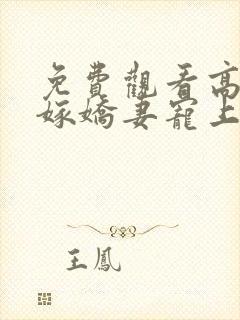 免費觀看高
嫁嬌妻寵上
王鳳